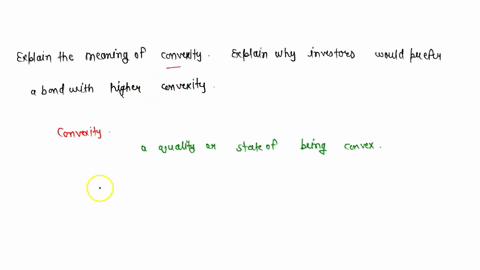 Explain the meaning of convexity. Explain why investors would prefer
a bond with higher convexity.
Convexity.
a quality or state of being convex.